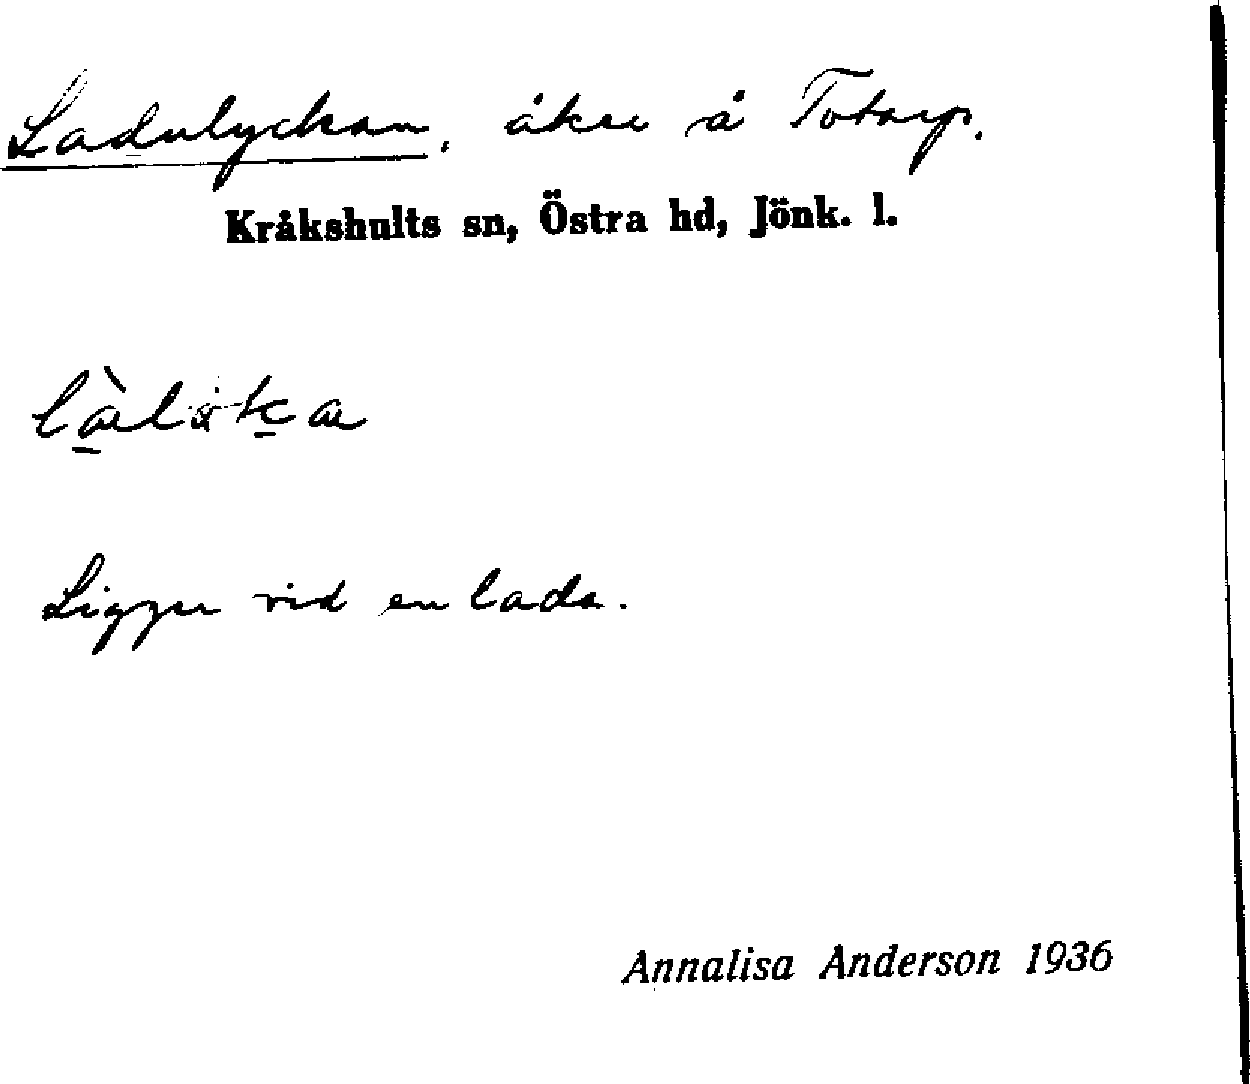 Ladulyckan, åker å Totarp.
Kråkshults sn, Östra hd, Jönk. l.
Ligger vid en lada.
Annalisa Anderson 1936